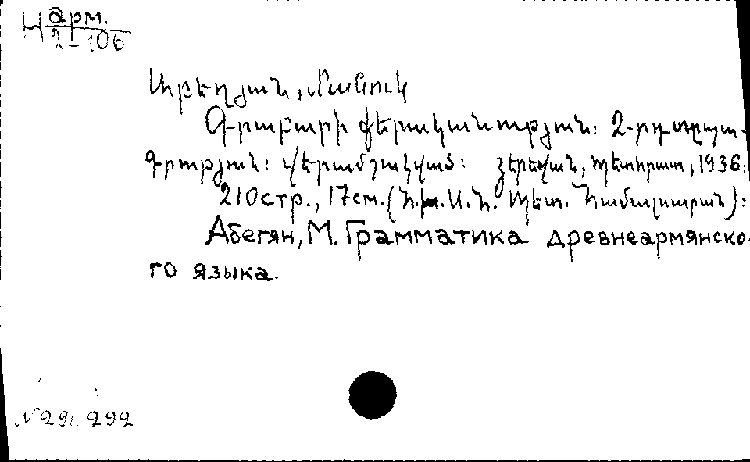 Н арм.
2-106
Աբեղյան, Մանուկ
Գրաբարի քերականություն: 2-րդ տպա-
գրություն: Վերամշակված: Երեվան, պետհրատ, 1936.
210стр., 17см. (Հ.Խ.Ս.Հ. Պետ. Համալսարան):
Абегян, М. Грамматика древнеармянско-
го языка.